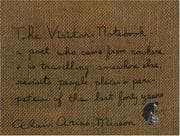 The Visitors Notebook
a poet who came from nowhere
& is travelling somewhere else,
revisits people places peri-
peties of the last forty years
Alain Arias-Misson